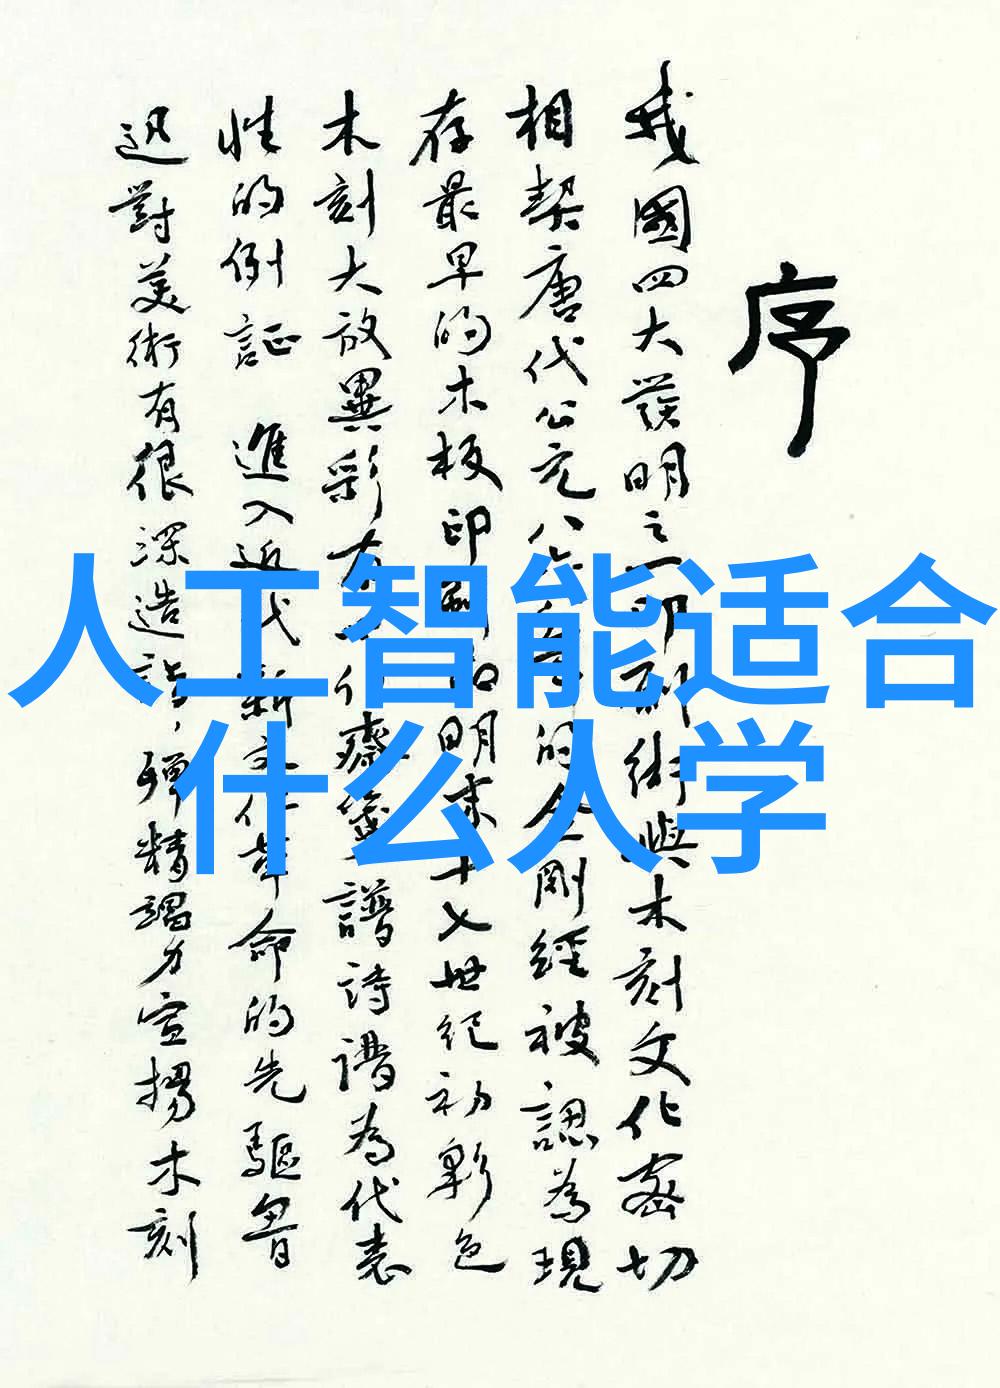 序
我國四大發明之一印刷術與木刻文化密切
相契唐代公元八六八年的金剛經被認為現
存最早的木板印刷和明末十七世紀初彩色
木刻大放異彩有十竹齋箋譜詩譜為代表
性的例証 進入近代新文化革命的先驅魯
迅對美術有很深造詣,殫精竭力宣揚木刻
人工智能适合
什么人学